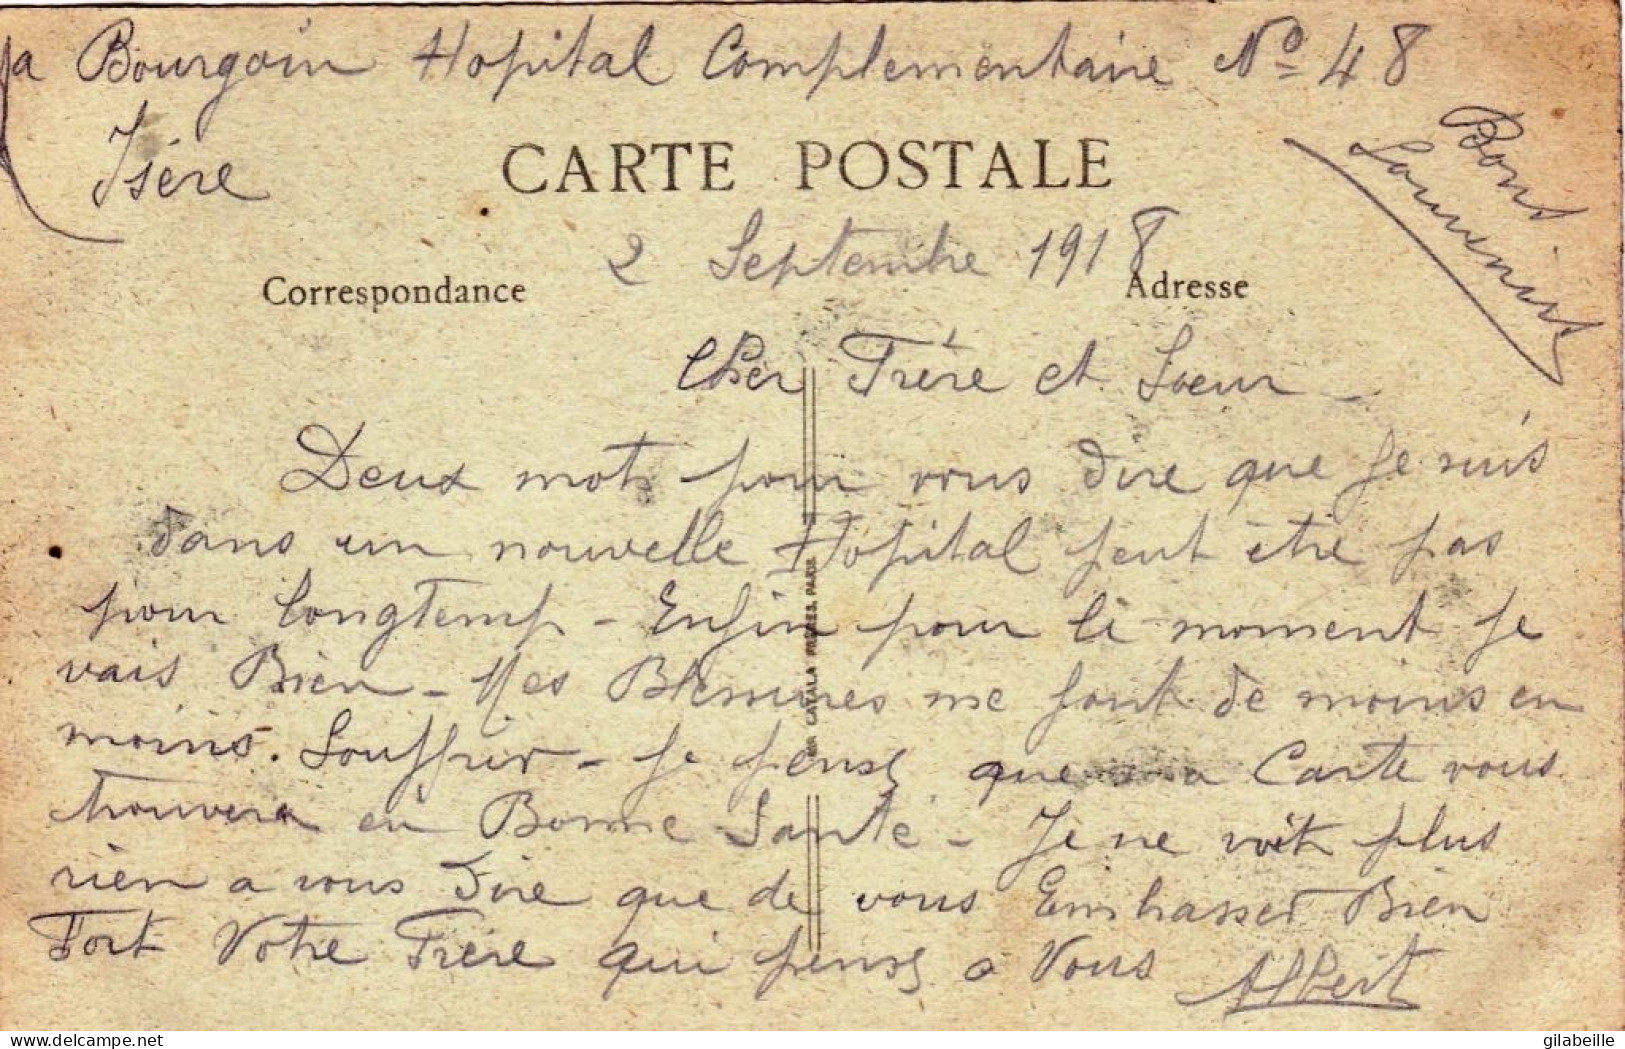 a Bourgoin Hopital Complementaire Nº 48
Isére
Bons
Souvenirs
CARTE POSTALE
2 Septembre 1918
Correspondance
Adresse
Cher Frére et Soeur
Deux mots pour vous dire que je suis
dans un nouvelle Hopital peut être pas
pour longtemp - Enfin pour le moment je
vais Bien - Mes Blessures me font de moins en
moins. Souffrir - je pense que ma Carte vous
trouvera en Bonne Santé - Je ne voit plus
rien a vous Dire que de vous Embrasser Bien
Fort Votre Frére qui pense a Vous Albert
CATALA FRERES, PARIS
delcampe.net
gilabeille